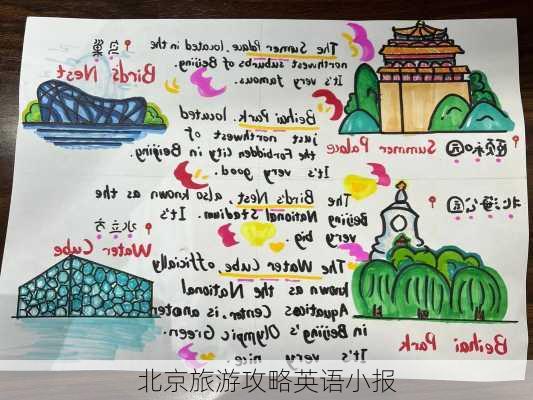 颐和园
Summer Palace
The Sumer Palace. located in the
northwest suburbs of Beijing.
It's very famous.
鸟巢
Bird's Nest
Beihai Park. located
just northwest of
the Forbidden City in Beijing.
It's very good.
北海公园
Beihai Park
The Bird's Nest. also known as the
Beijing National Stadium. It's
very big.
水立方
Water Cube
The Water Cube. officially
known as the National
Aquatics Center, is
in Beijing's Olympic Green.
It's very nice.
北京旅游攻略英语小报